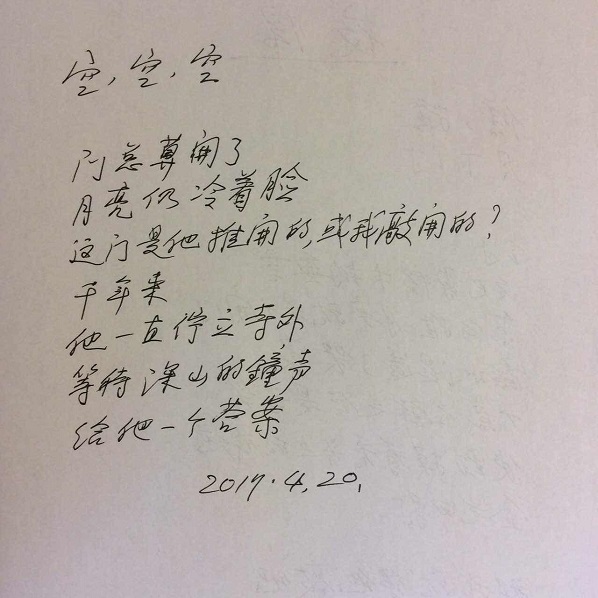 空,空,空
门总算开了
月亮仍冷着脸
这门是他推開的,或我敲開的?
千年来
他一直佇立寺外
等待深山的鐘声
给他一个答案
2017.4.20.